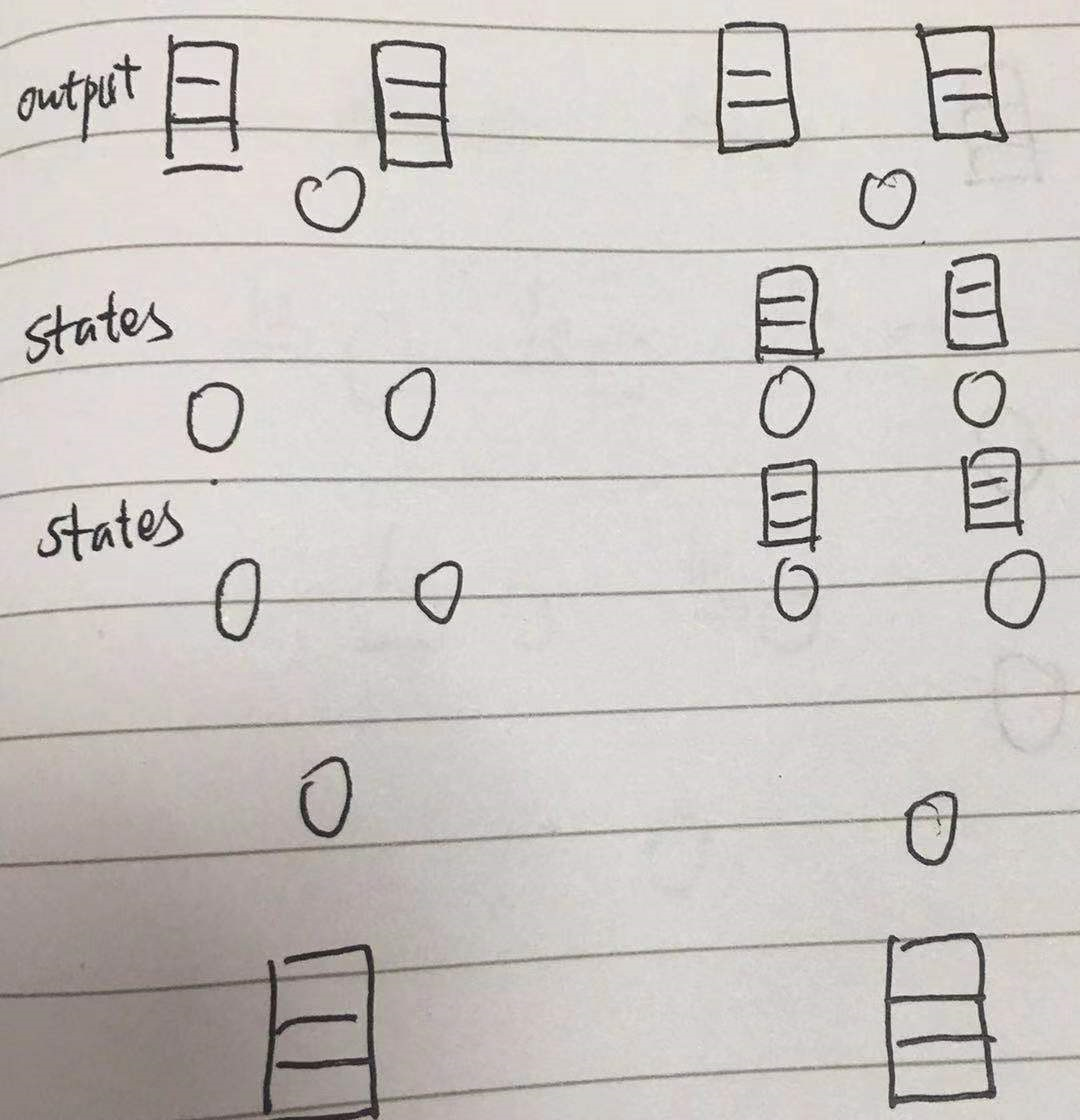 output
states
states